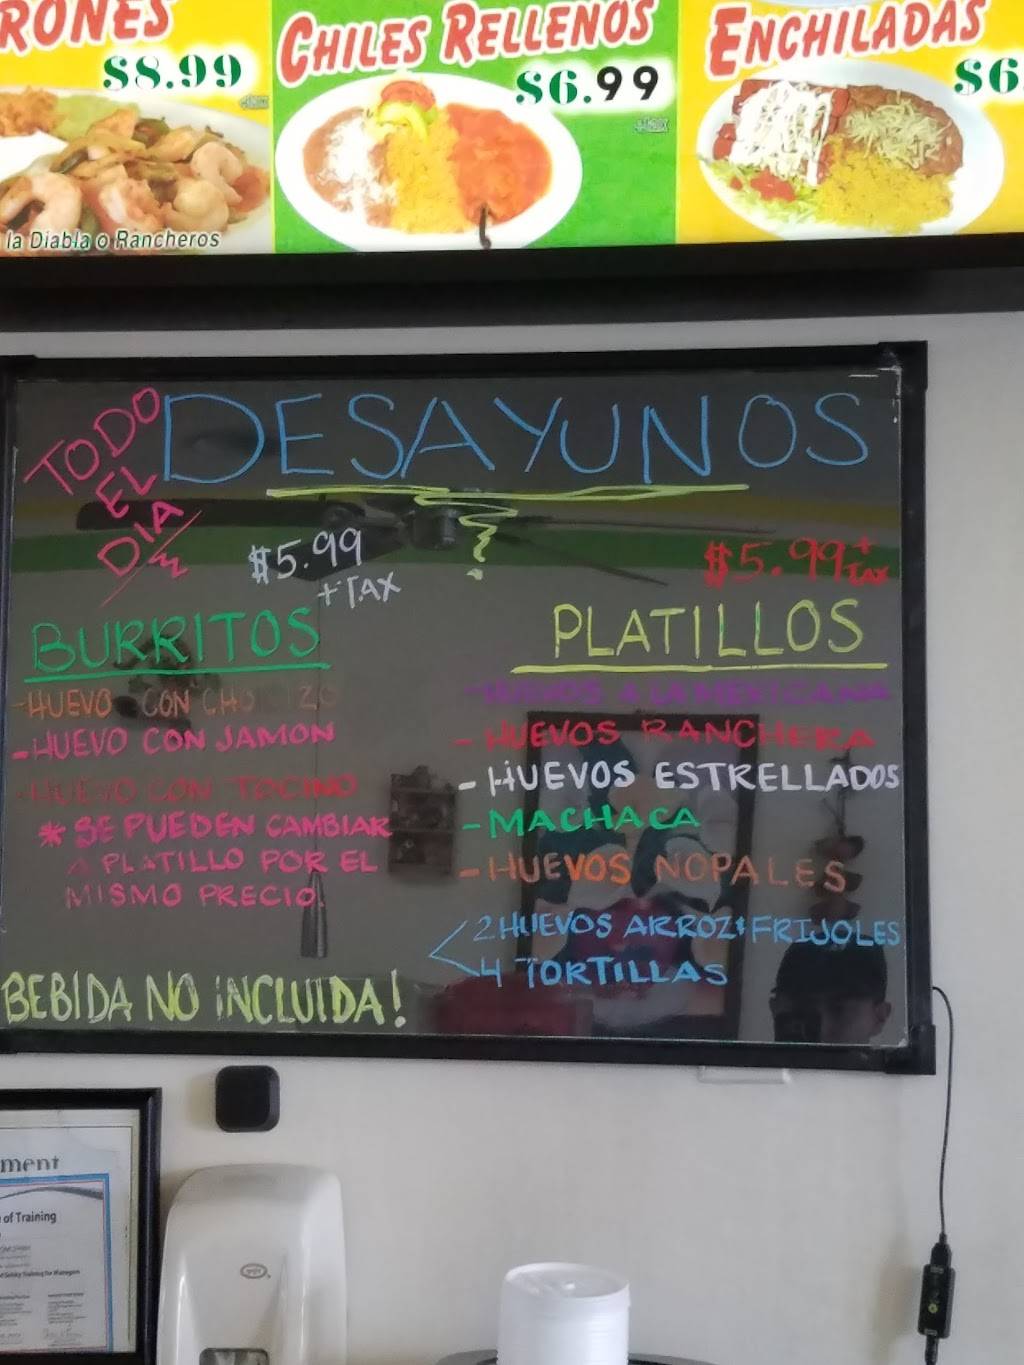 RONES
$8.99
la Diabla o Rancheros
CHILES RELLENOS
$6.99
ENCHILADAS
$6
TODO
EL
DIA
DESAYUNOS
$5.99
+TAX
BURRITOS
-HUEVO CON CHORIZO
-HUEVO CON JAMON
-HUEVO CON TOCINO
* SE PUEDEN CAMBIAR
A PLATILLO POR EL
MISMO PRECIO.
BEBIDA NO INCLUIDA!
$5.99 +
TAX
PLATILLOS
-HUEVOS A LA MEXICANA
- HUEVOS RANCHERA
- HUEVOS ESTRELLADOS
- MACHACA
- HUEVOS NOPALES
2 HUEVOS ARROZ & FRIJOLES
4 TORTILLAS
ment
of Training